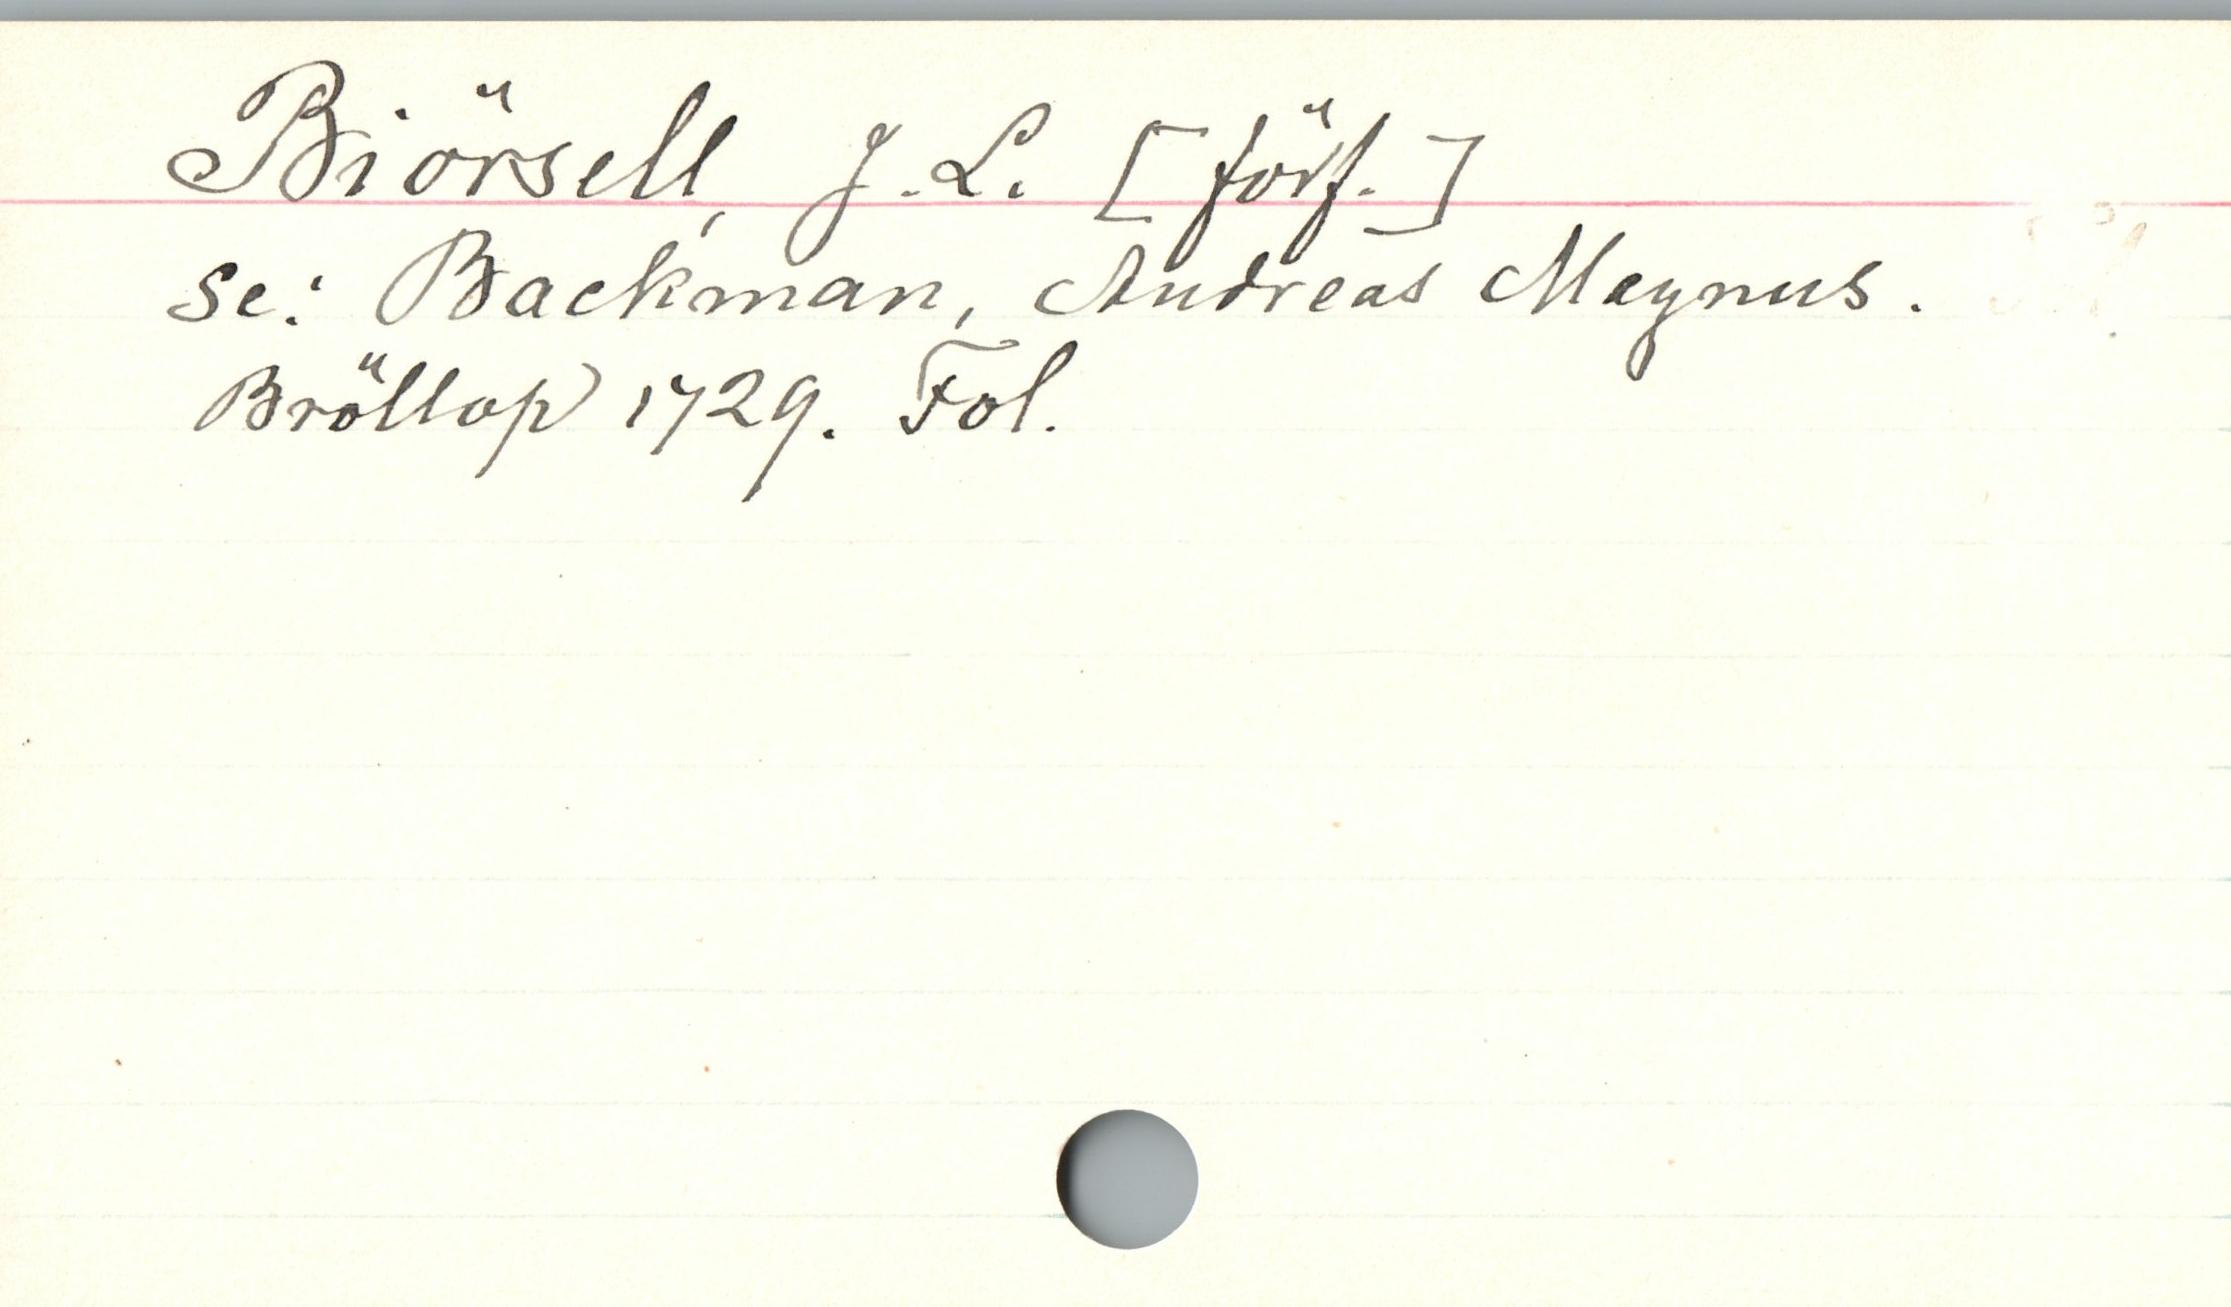 Biörsell, J. L. [förf.]
se: Backman, Andreas Magnus.
Bröllop 1729. Fol.